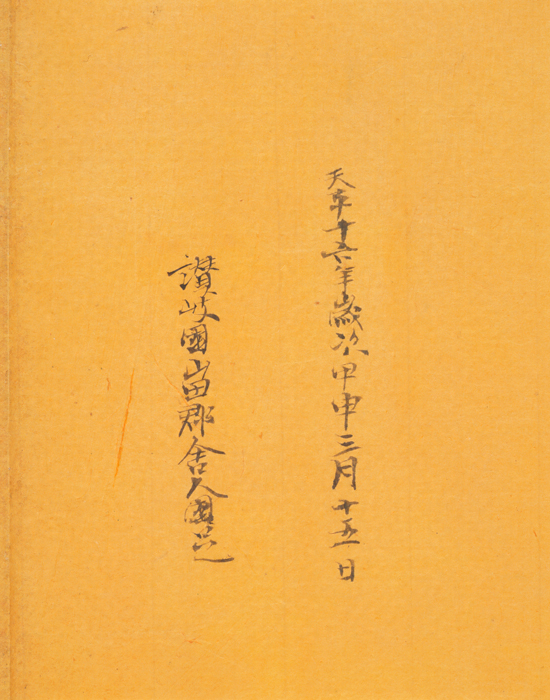 天平十六年歳次甲申三月十五日
讃岐國山田郡舎人國足